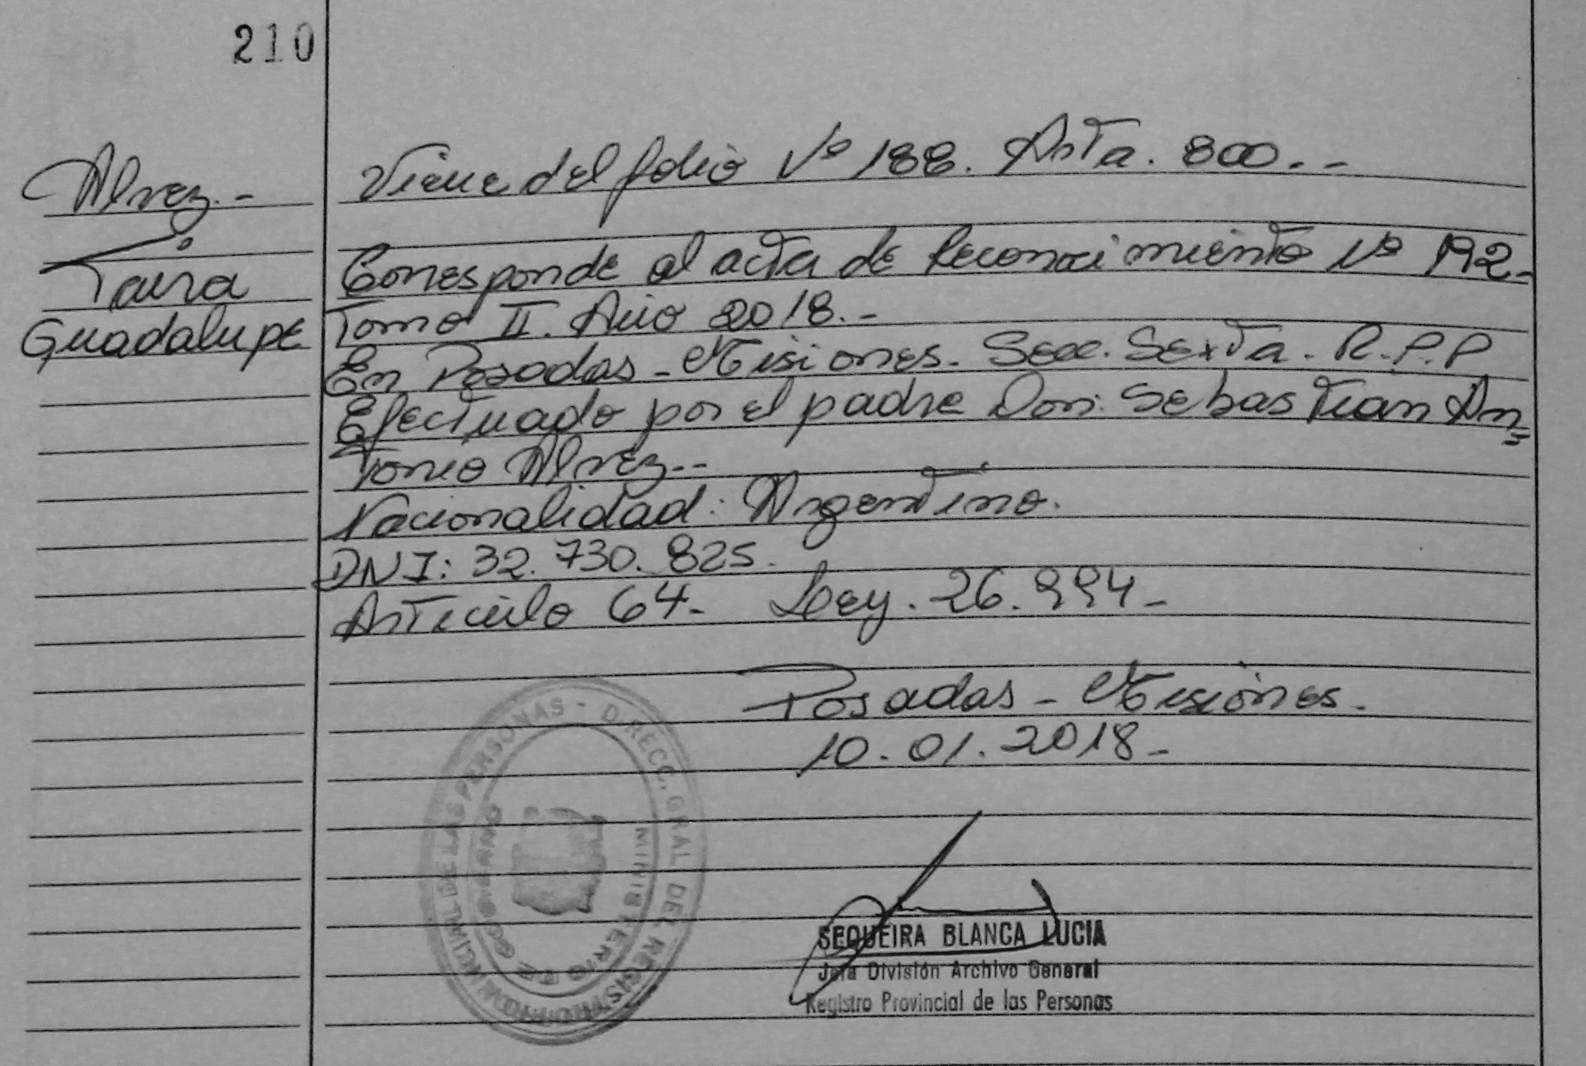 210
Alvez.-
Taira
Guadalupe
Viene del folio Nº 188. Acta. 800.-
Corresponde al acta de Reconocimiento Nº 192-
Tomo II. Año 2018.-
En Posadas - Misiones. Secc. Sexta. R.P.P
Efectuado por el padre Don: Sebastian An=
tonio Alvez.-
Nacionalidad: Argentino.
DNI: 32.730.825.
Articulo 64- Ley. 26.994-
Posadas - Misiones.
10.01.2018-
DIRECC. GRAL DEL REGISTRO PROVINCIAL DE LAS PERSONAS -
MINISTERIO DE GOBIERNO
SEQUEIRA BLANCA LUCIA
Jefa División Archivo General
Registro Provincial de las Personas